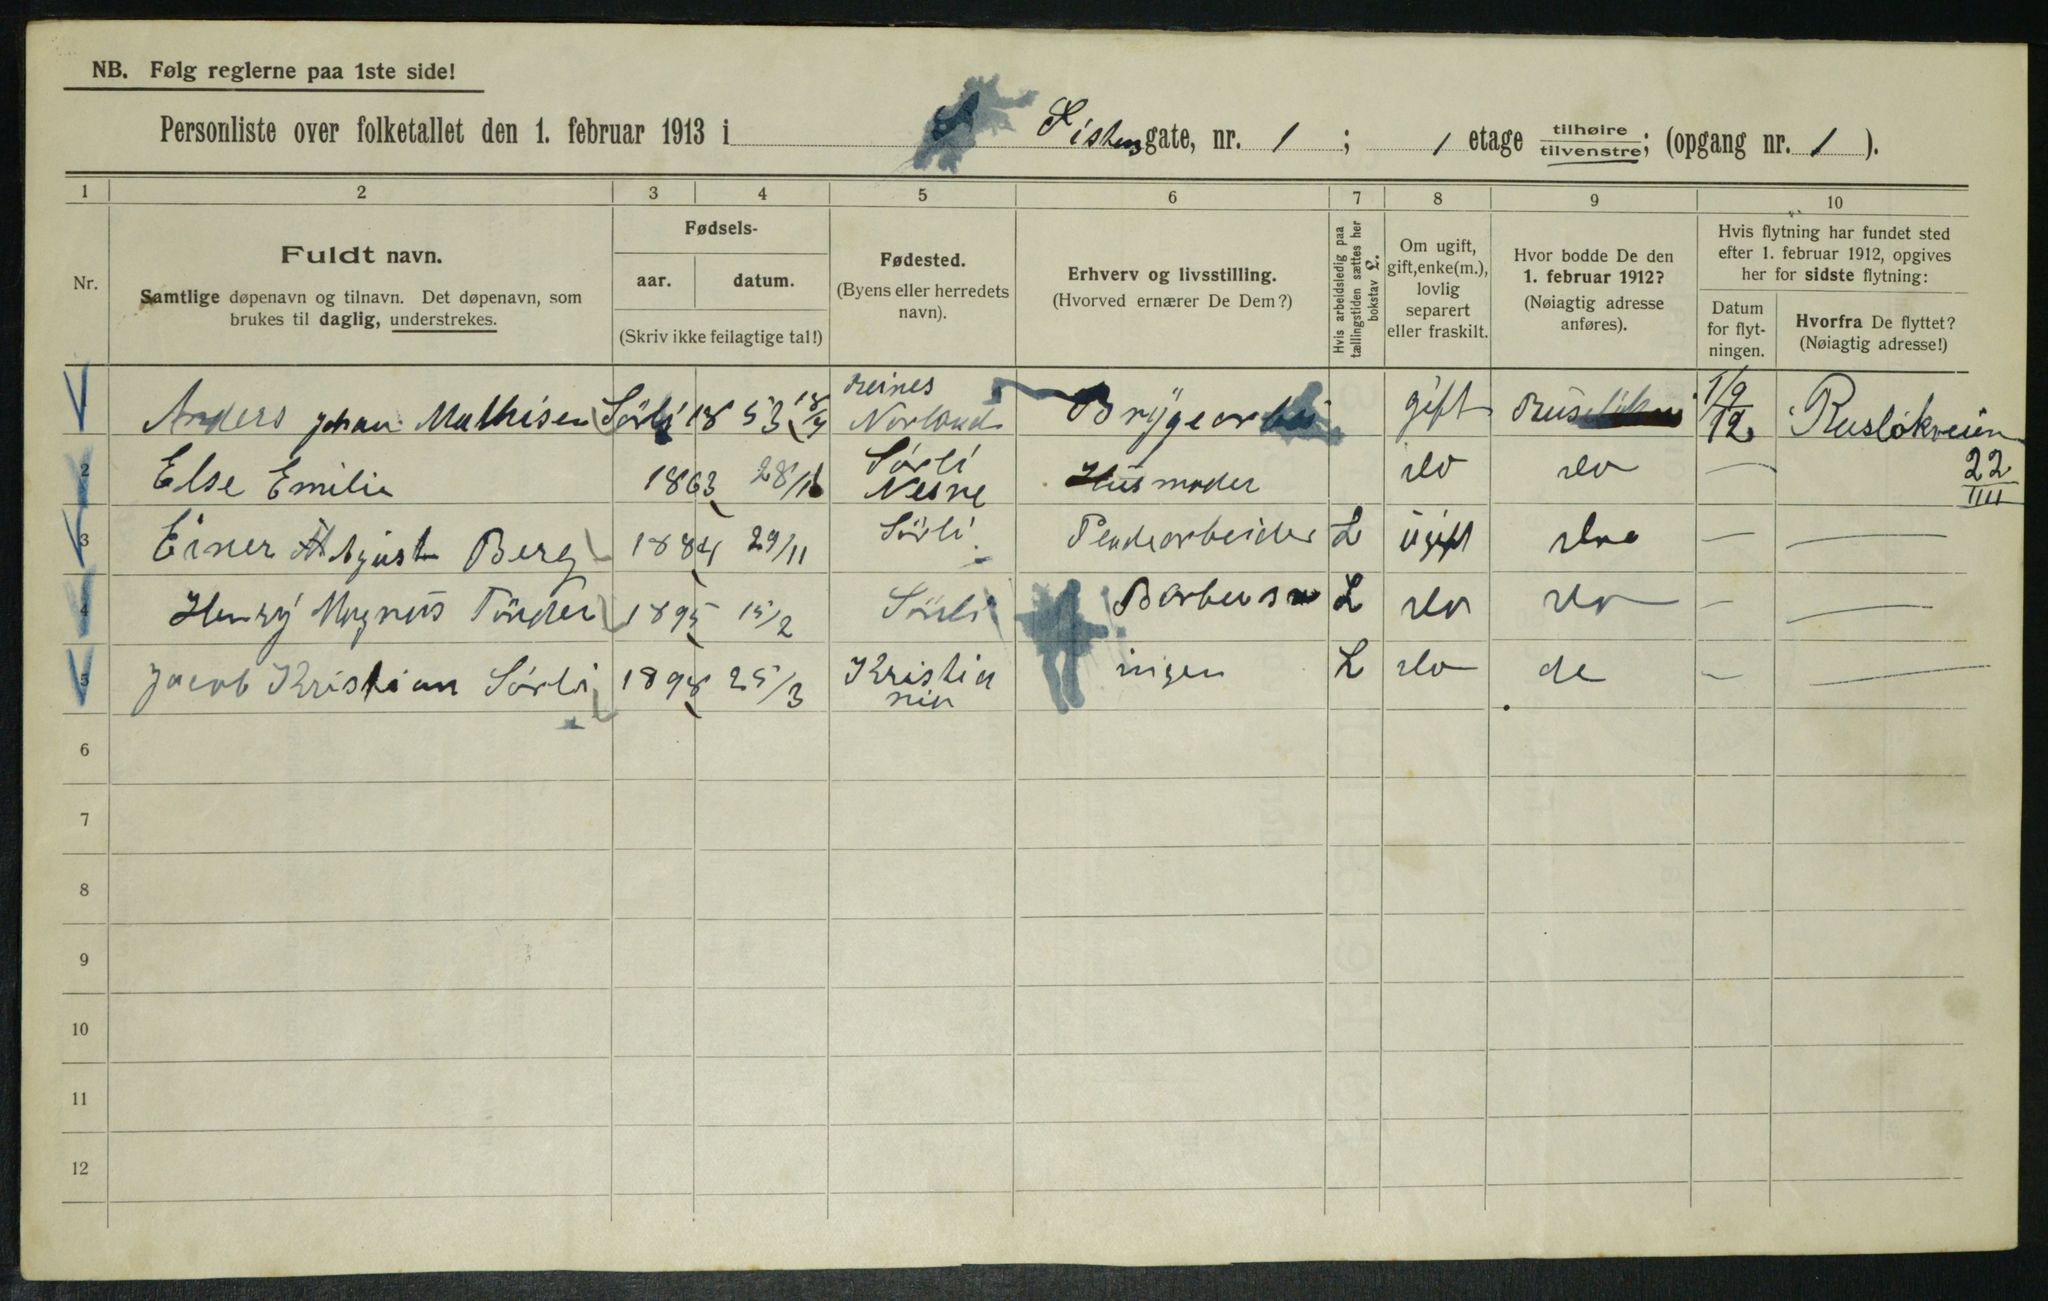 NB. Følg reglerne paa 1ste side!
Personliste over folketallet den 1. februar 1913 i gate, nr. 1 ; 1 etage tilhøire tilvenstre; (opgang nr. 1 ).
1 2 3 4 5 6 7 8 9 10
Nr.
Fuldt navn.
Samtlige døpenavn og tilnavn. Det døpenavn, som
brukes til daglig, understrekes.
Fødsels-
aar. datum.
(Skriv ikke feilagtige tal!)
Fødested.
(Byens eller herredets
navn).
Erhverv og livsstilling.
(Hvorved ernærer De Dem?)
Hvis arbeidsledig paa
tællingstiden sættes her
bokstav L.
Om ugift,
gift, enke(m.),
lovlig
separert
eller fraskilt.
Hvor bodde De den
1. februar 1912?
(Nøiagtig adresse
anføres).
Hvis flytning har fundet sted
efter 1. februar 1912, opgives
her for sidste flytning:
Datum
for flyt-
ningen.
Hvorfra De flyttet?
(Nøiagtig adresse!)
Anders Johan Mathisen Sörli 1853 18/4 Norland gift 1/9 12 Rusløkveien
22
III
2 Else Emilie 1863 28/11 Sörli Nesne Husmoder do do —
3 Einer August Berg 1884 29/11 Sörli L ügift do — —
4 Henry Magnus Tönder 1895 15/2 Sörli L do do — —
5 Jacob Kristian Sörli 1898 25/3 Kristia
nia ingen L do do — —
6
7
8
9
10
11
12